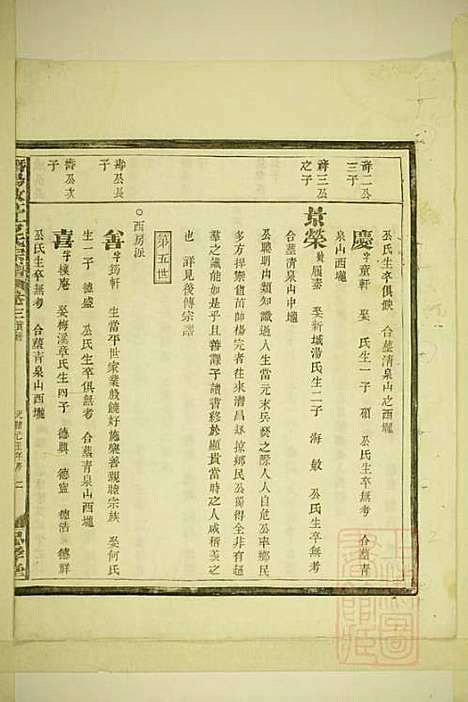 公氏俱缺 合塟清泉山之西壠
壽二公
三子
慶 字童軒 娶 氏生一子 碩 公氏生卒無考 合塟青
泉山西壠
壽三公
之子
景榮 號履素 娶新城湯氏生二子 海 敏 公氏生卒無考
合塟清泉山中壠
公聰明內類知識過人生當元末兵燹之際人人自危公率鄉民
多方捍禦值苗帥楊完者往來濳昌掠鄉民公獨得全非有超
羣之識能如是乎且善課子讀書終於顯貴當時之人咸稱羡之
也 詳見後傳宗譜
第五世
○西房派
壽公長
子
舍 字筠軒 生當平世家業饒好施樂善親睦宗族 娶何氏
生一子 德盛 公氏生卒俱無考 合塟青泉山西壠
壽公次
子
喜 字樓庵 娶梅溪章氏生四子 德興 德富 德浩 德鮮
公氏生卒無考 合塟青泉山西壠